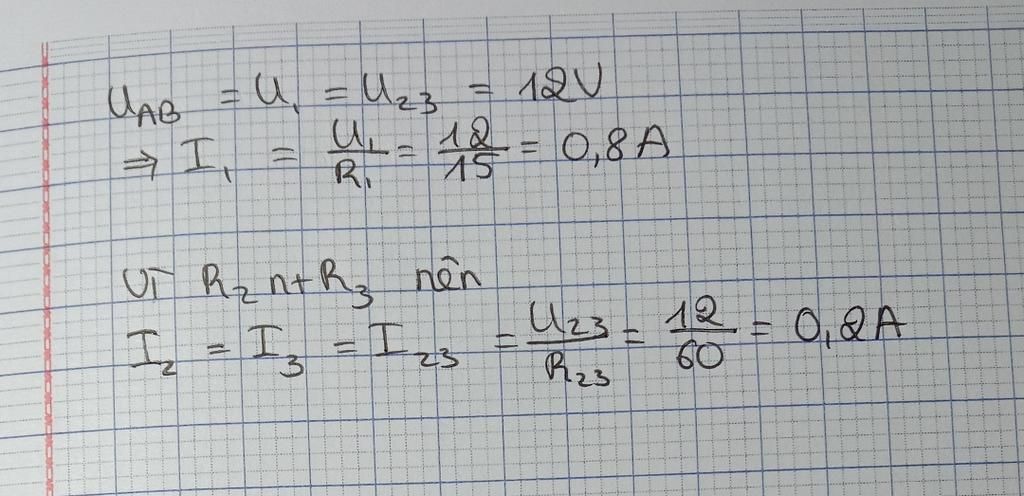 U_AB = U₁ = U₂₃ = 12V
⇒ I₁ = U₁/R₁ = 12/15 = 0,8A
Vì R₂ nt R₃ nên
I₂ = I₃ = I₂₃ = U₂₃/R₂₃ = 12/60 = 0,2A